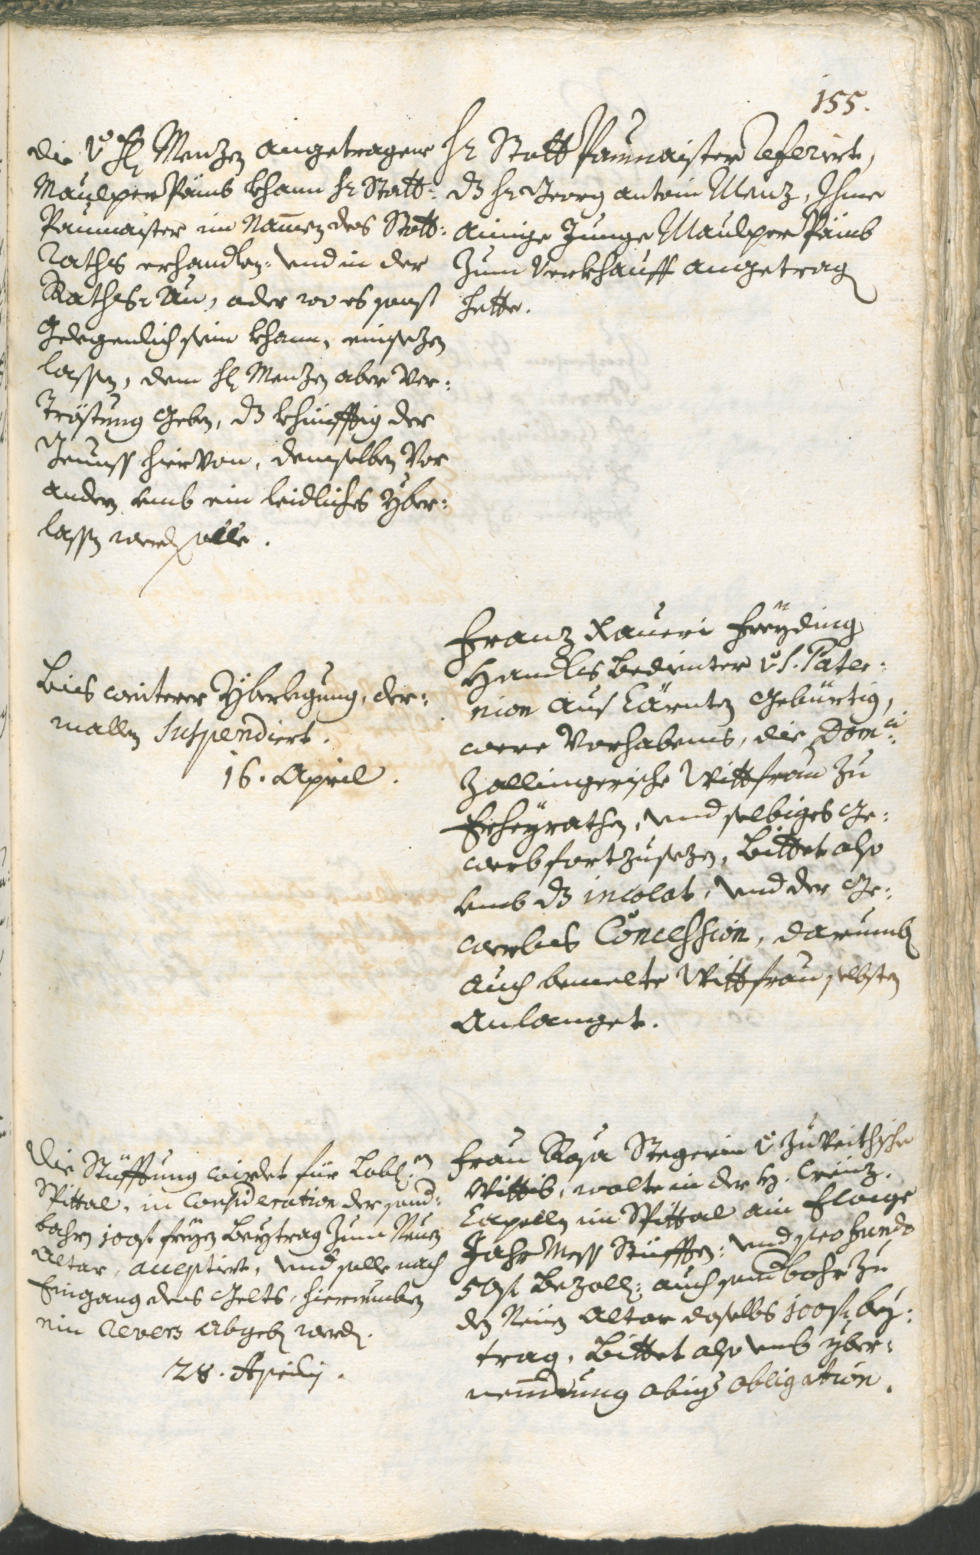 155.
die v. H. Menzen angetragene
Maulper Päimb khann Hr Statt-
Paumaister im Namen des Statt-
Raths erhandlen: vnd in der
Raths Au, oder wo es sonst
gelegenlich sein khann, einsezen
lassen, dem H. Menzen aber Ver-
tröstung geben, dz khünfftig der
Genuss hiervon, demselben vor
andern umb ein leidliches yber-
lassen werden solle.
Hr Statt Paumaister referirt,
dz Hr Georg Antoni Menz, Ihme
ainige Junge Maulper Päimb
zum Verkhauff angetragen
hette.
Bis weiterer Yberlegung, der-
mallen Suspendiert.
16. April.
Franz Xaueri Freyding
Handls Bedienter v. S. Pater-
nion aus Kärnten gebürtig,
were Vorhabens, die Dom:
Zallingerische Wittfrau zu
Eheyrathen, vnd selbiges Ge-
werb fortzusezen, Bittet also
umb dz incolat, vnd der Ge-
werbes Concession, darumb
auch bemelte Wittfrau selbsten
Anlanget.
Die Stüfftung wirdet für Lobl:
Spittal, in Consideration der
100 fl freyen Beytrag zum Neuen
Altar, acceptiert, vnd solle nach
Eingang des Gelts, hierumben
ein Revers Abgeben werden.
28. Aprilis.
Frau Rosa Stegerin v.
Wittib, wolte in der H. Creuz
Capellen im Spittal ain Ewige
Jahr Mess Stüfften: vnd
50 fl Bezallen: auch zu
den Neuen Altar daselbs 100 fl bey-
tragen, Bittet also umb yber-
nembung obiger obligation.